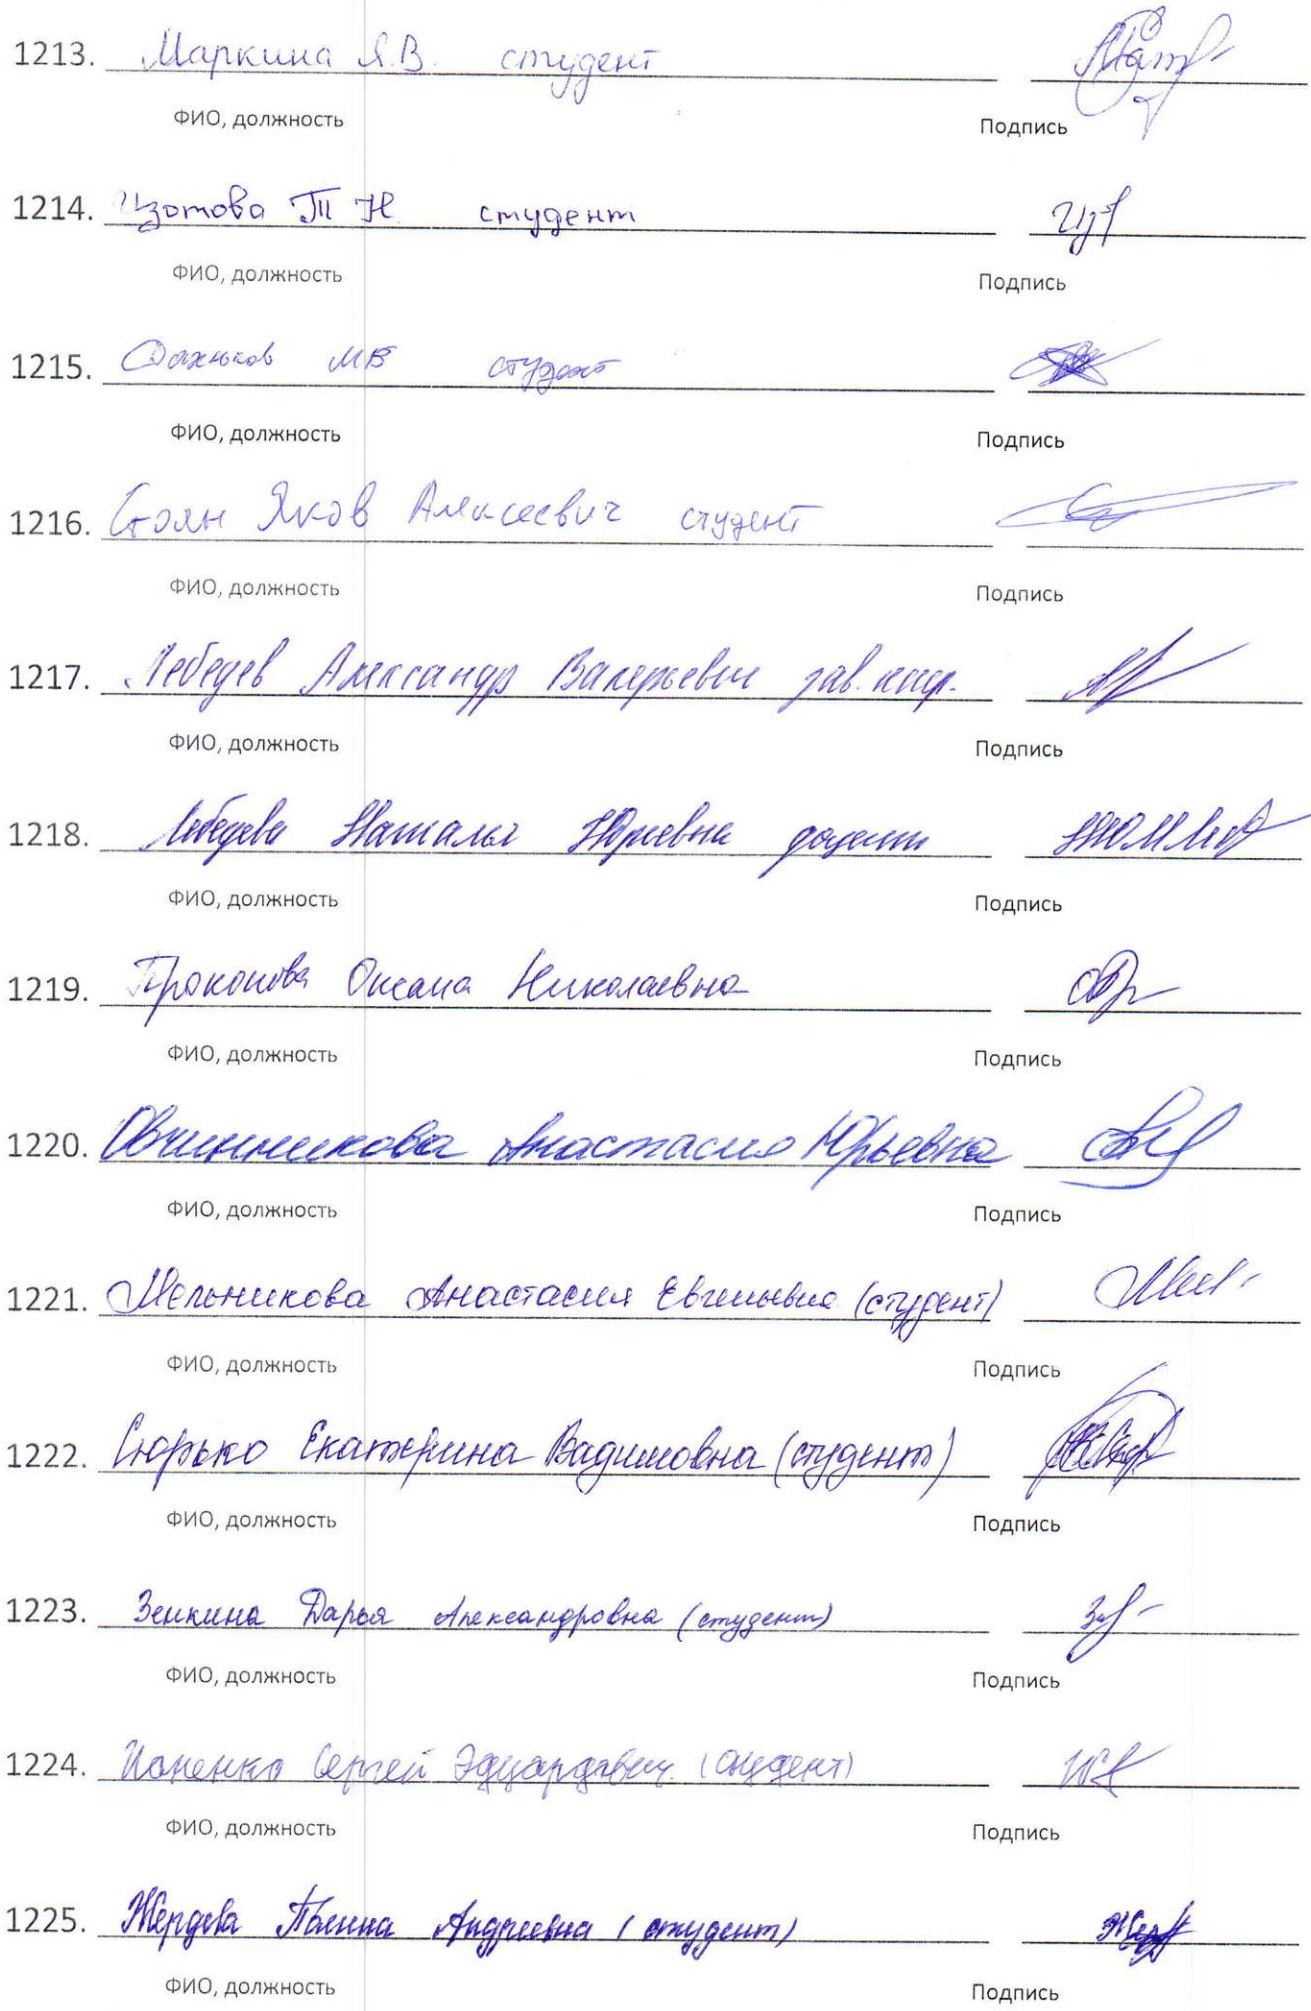 1213. Маркина Я.В. студент
ФИО, должность Подпись
1214. Изотова Т Н. студент
ФИО, должность Подпись
1215. МВ студент
ФИО, должность Подпись
1216. Стоян Яков Алексеевич студент
ФИО, должность Подпись
1217. Лебедев Александр Валерьевич зав. каф.
ФИО, должность Подпись
1218. Лебедева Наталья Юрьевна доцент
ФИО, должность Подпись
1219. Оксана Николаевна
ФИО, должность Подпись
1220. Овчинникова Анастасия Юрьевна
ФИО, должность Подпись
1221. Мельникова Анастасия Евгеньевна (студент)
ФИО, должность Подпись
1222. Сюрько Екатерина Вадимовна (студент)
ФИО, должность Подпись
1223. Зенкина Дарья Александровна (студент)
ФИО, должность Подпись
1224. Сергей Эдуардович (студент)
ФИО, должность Подпись
1225. Жердева Полина Андреевна (студент)
ФИО, должность Подпись